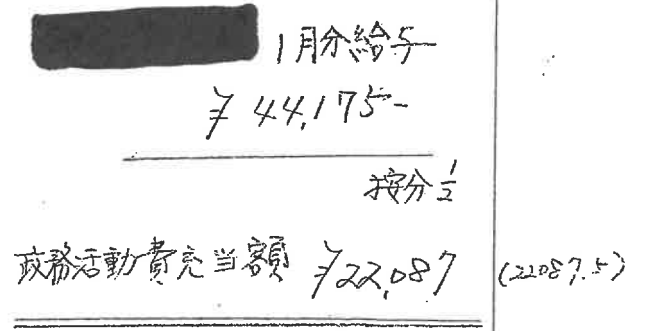 1月分給与
¥44,175-
按分1/2
政務活動費充当額 ¥22,087 (22087.5)